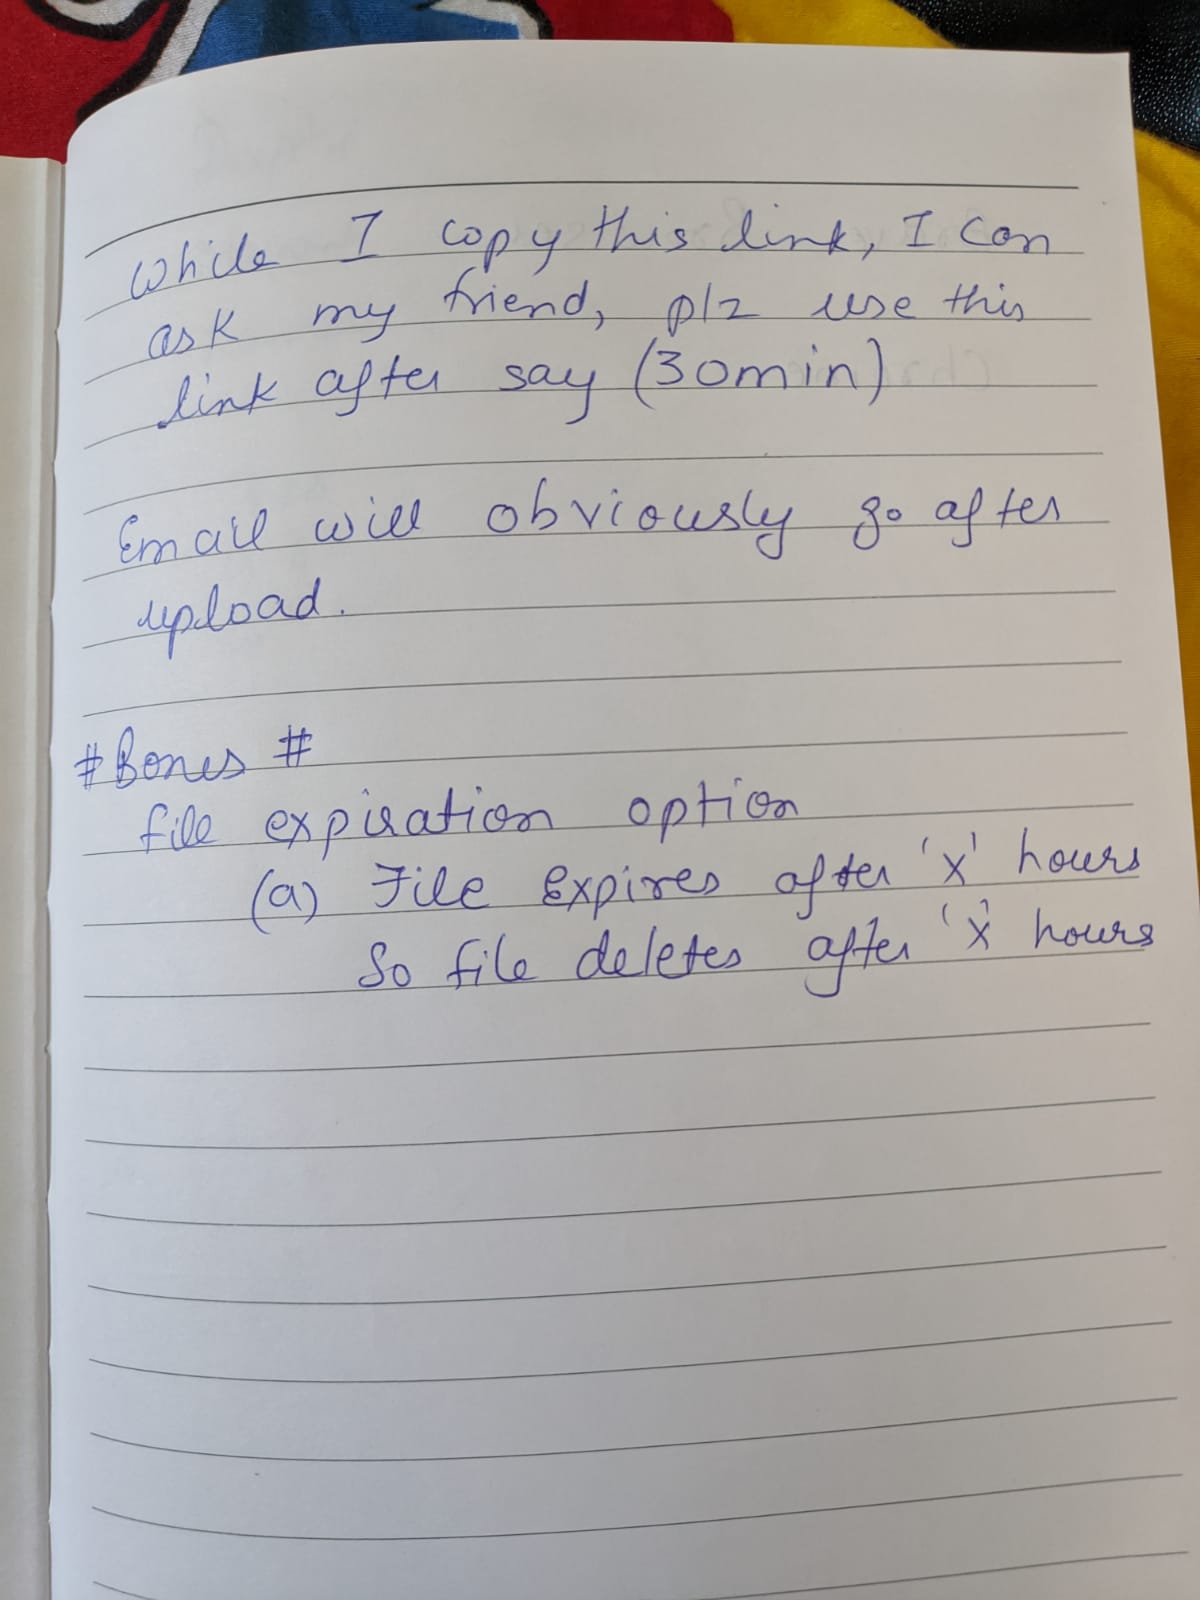 While I copy this link, I can
ask my friend, plz use this
link after say (30min)
Email will obviously go after
upload.
#Bones #
file expiration option
(a) File Expires after 'x' hours
So file deletes after 'x' hours